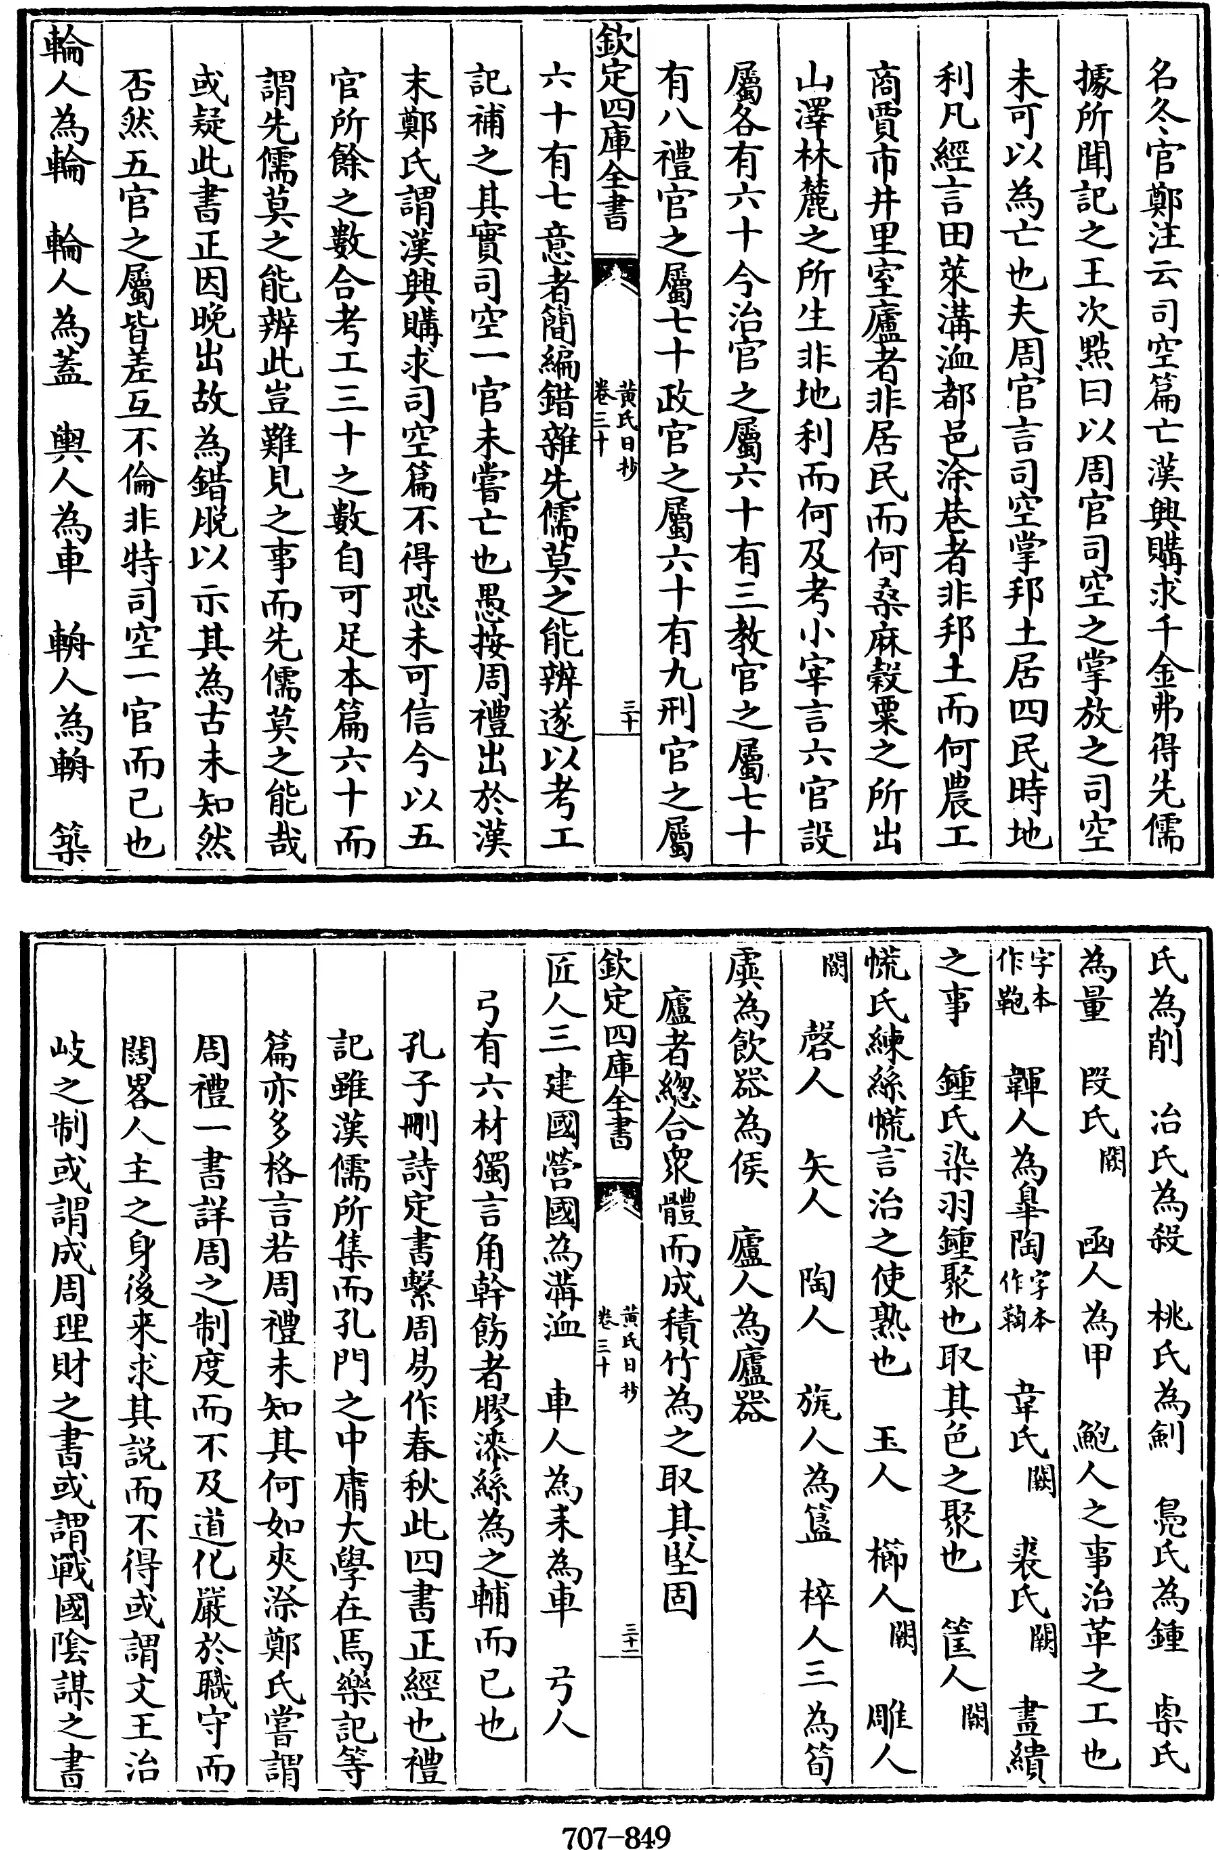 名冬官鄭注云司空篇亡漢興購求千金弗得先儒
據所聞記之王次㸃曰以周官司空之掌放之司空
未可以為亡也夫周官言司空掌邦土居四民時地
利凡經言田萊溝洫都邑涂巷者非邦土而何農工
商賈市井里室廬者非居民而何桑麻穀粟之所出
山澤林麓之所生非地利而何及考小宰言六官設
屬各有六十今治官之屬六十有三教官之屬七十
有八禮官之屬七十政官之屬六十有九刑官之屬
欽定四庫全書
黄氏日抄
卷三十
三十
六十有七意者簡編錯雜先儒莫之能辨遂以考工
記補之其實司空一官未嘗亡也愚按周禮出於漢
末鄭氏謂漢興購求司空篇不得恐未可信今以五
官所餘之數合考工三十之數自可足本篇六十而
謂先儒莫之能辨此豈難見之事而先儒莫之能哉
或疑此書正因晩出故為錯脱以示其為古未知然
否然五官之屬皆差互不倫非特司空一官而已也
輪人為輪　輪人為蓋　輿人為車　輈人為輈　築
氏為削　冶氏為殺　桃氏為劍　鳧氏為鍾　㮚氏
為量　段氏闕　函人為甲　鮑人之事治革之工也
字本
作鞄　韗人為臯陶字本
作鞠　韋氏闕　裘氏闕　畫繢
之事　鍾氏染羽鍾聚也取其色之聚也　筐人闕
㡛氏練絲㡛言治之使熟也　玉人　楖人闕　雕人
闕　磬人　矢人　陶人　旊人為簋　梓人三為筍
虡為飲器為侯　廬人為廬器
廬者總合衆體而成積竹為之取其堅固
欽定四庫全書
黄氏日抄
卷三十
三十一
匠人三建國營國為溝洫　車人為耒為車　弓人
弓有六材獨言角幹筋者膠漆絲為之輔而已也
孔子刪詩定書繫周易作春秋此四書正經也禮
記雖漢儒所集而孔門之中庸大學在焉樂記等
篇亦多格言若周禮未知其何如夾漈鄭氏嘗謂
周禮一書詳周之制度而不及道化嚴於職守而
闊畧人主之身後来求其説而不得或謂文王治
岐之制或謂成周理財之書或謂戰國隂謀之書
707-849